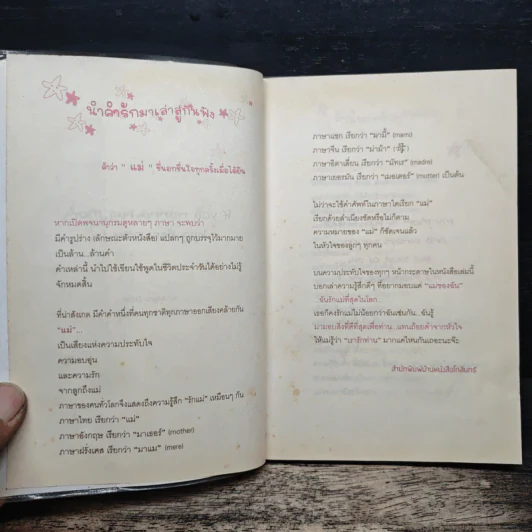 นำคำรักมาเล่าสู่กันฟัง
คำว่า " แม่ " ชื่นอกชื่นใจทุกครั้งเมื่อได้ยิน
หากเปิดพจนานุกรมดูหลายๆ ภาษา จะพบว่า
มีคำรูปร่าง (ลักษณะตัวหนังสือ) แปลกๆ ถูกบรรจุไว้มากมาย
เป็นล้าน...ล้านคำ
คำเหล่านี้ นำไปใช้เขียนใช้พูดในชีวิตประจำวันได้อย่างไม่รู้
จักหมดสิ้น
ที่น่าสังเกต มีคำคำหนึ่งที่คนทุกชาติทุกภาษาออกเสียงคล้ายกัน
"แม่"...
เป็นเสียงแห่งความประทับใจ
ความอบอุ่น
และความรัก
จากลูกถึงแม่
ภาษาของคนทั่วโลกจึงแสดงถึงความรู้สึก "รักแม่" เหมือนๆ กัน
ภาษาไทย เรียกว่า "แม่"
ภาษาอังกฤษ เรียกว่า "มาเธอร์" (mother)
ภาษาฝรั่งเศส เรียกว่า "มาแม" (mere)
ภาษาแขก เรียกว่า "มามี้" (mami)
ภาษาจีน เรียกว่า "ม่าม้า"
ภาษาอิตาเลี่ยน เรียกว่า "มัทเร" (madre)
ภาษาเยอรมัน เรียกว่า "เมอเตอร์" (mutter) เป็นต้น
ไม่ว่าจะใช้คำศัพท์ในภาษาใดเรียก "แม่"
เรียกด้วยสำเนียงชัดหรือไม่ก็ตาม
ความหมายของ "แม่" ก็ชัดเจนแล้ว
ในหัวใจของลูกๆ ทุกคน
บนความประทับใจของทุกๆ หน้ากระดาษในหนังสือเล่มนี้
บอกเล่าความรู้สึกดีๆ ที่อยากมอบแด่ "แม่ของฉัน"
...ฉันรักแม่ที่สุดในโลก...
เธอก็คงรักแม่ไม่น้อยกว่าฉันเช่นกัน...ฉันรู้
มามอบสิ่งที่ดีที่สุดเพื่อท่าน...แทนถ้อยคำจากหัวใจ
ให้แม่รู้ว่า "เรารักท่าน" มากแค่ไหนกันเถอะนะจ๊ะ